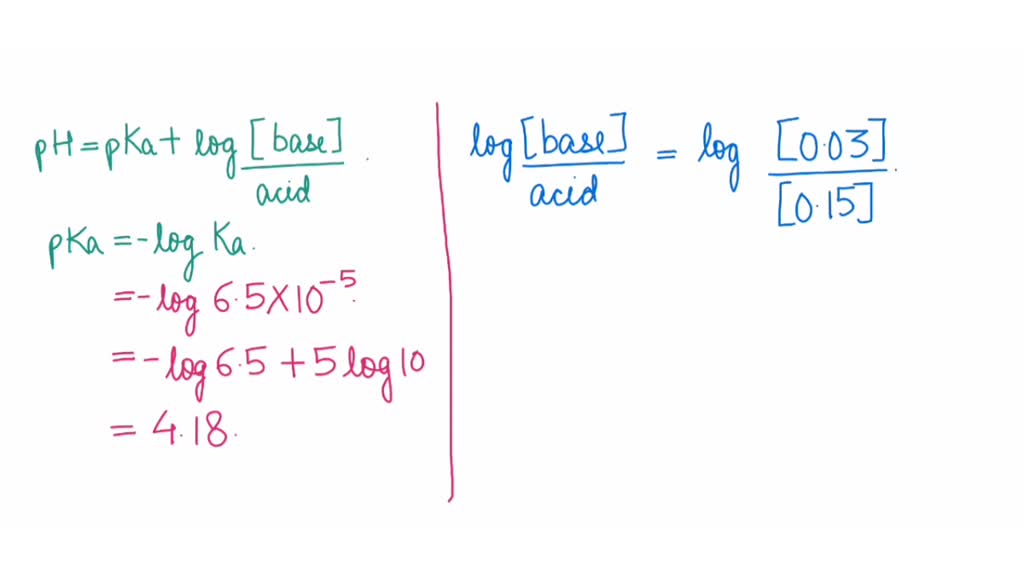 pH = pKa + log [base] / acid .
pKa = -log Ka.
= -log 6.5 X 10⁻⁵.
= -log 6.5 + 5 log 10
= 4.18.
log [base] / acid = log [0.03] / [0.15] .